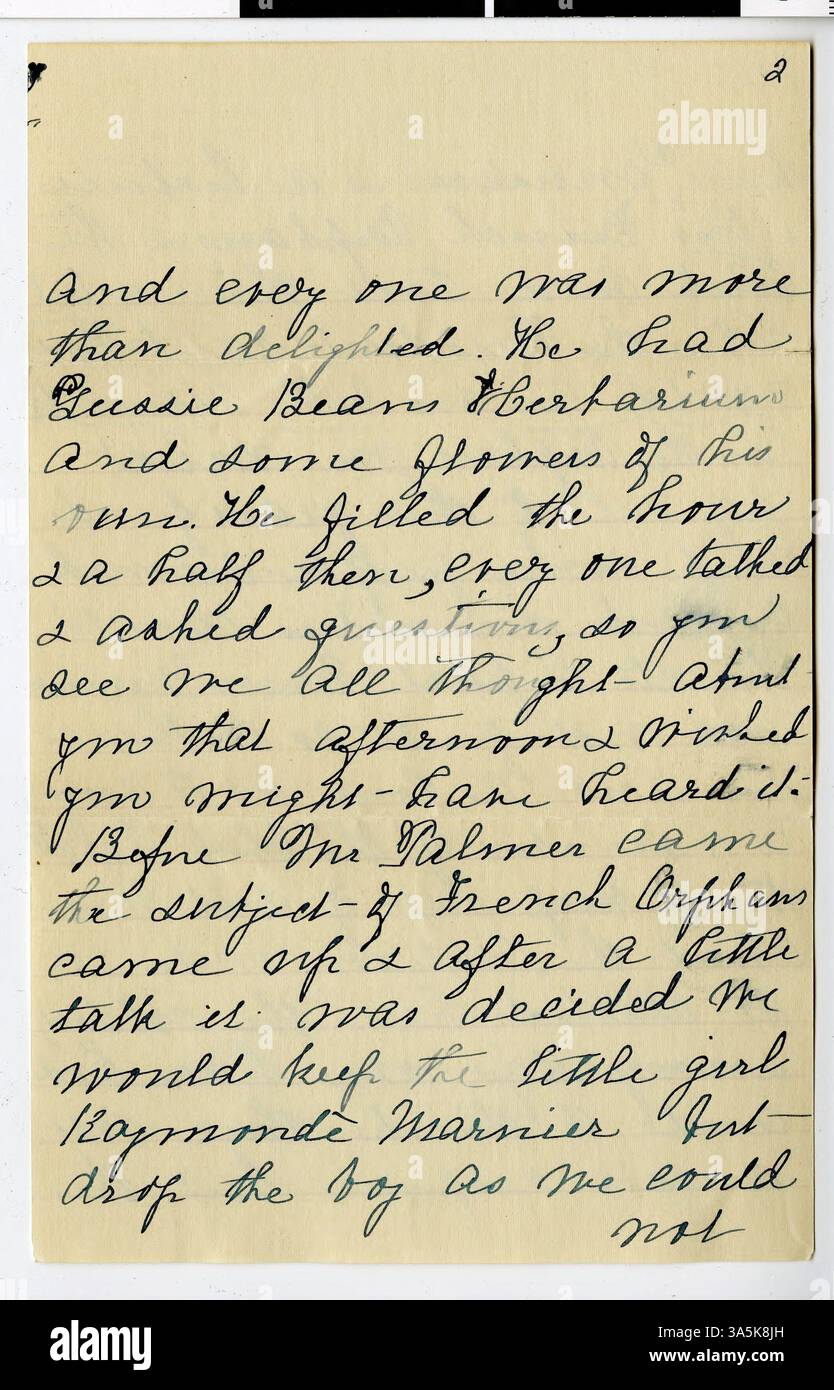 2
and every one was more
than delighted. He had
Gussie Beans Herbarium
and some flowers of his
own. He filled the hour
& a half then, every one talked
& asked questions, so you
see we all thought about
you that afternoon & wished
you might have heard it.
Before Mr Palmer came
the subject of French Orphans
came up & after a little
talk it was decided we
would keep the little girl
Raymondè Marnier but
drop the boy as we could
not
alamy
a
alamy
Image ID: 3A5K8JH
www.alamy.com